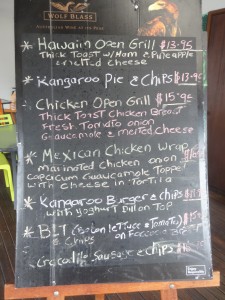 WOLF BLASS
* Hawaiin Open Grill $13.95
Thick Toast w/Ham & Pineapple
grilled cheese
* Kangaroo Pie & chips $13.95
* Chicken Open Grill $15.95
Thick Toast Chicken Breast
Fresh Tomato onion
Guacamole & melted cheese
* Mexican Chicken Wrap
Marinated Chicken onion
Capsicum Guacamole Topped
with cheese in Tortilla
* Kangaroo Burger & chips
with Yoghurt Dill on Top
* BLT (Bacon Lettuce & Tomato)
& chips on
Crocodile Sausage & chips